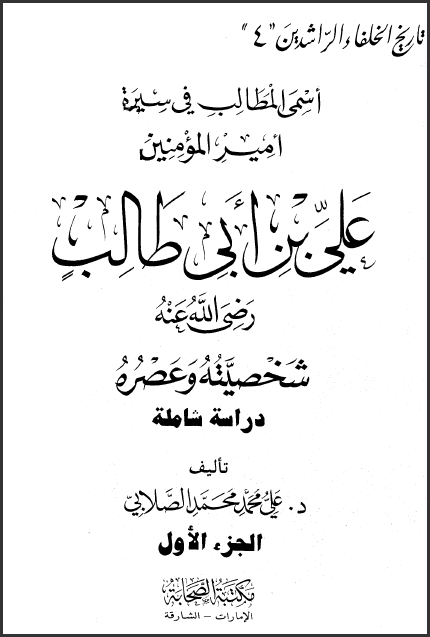 تاريخ الخلفاء الراشدين "٤"
أسمى المطالب في سيرة
أمير المؤمنين
عَلِيّ بْنِ أَبِي طَالِبٍ
رَضِيَ اللَّهُ عَنْهُ
شَخْصِيَّتُهُ وَعَصْرُهُ
دراسة شاملة
تأليف
د. علي محمد محمد الصلابي
الجزء الأول
مكتبة الصحابة
الإمارات - الشارقة